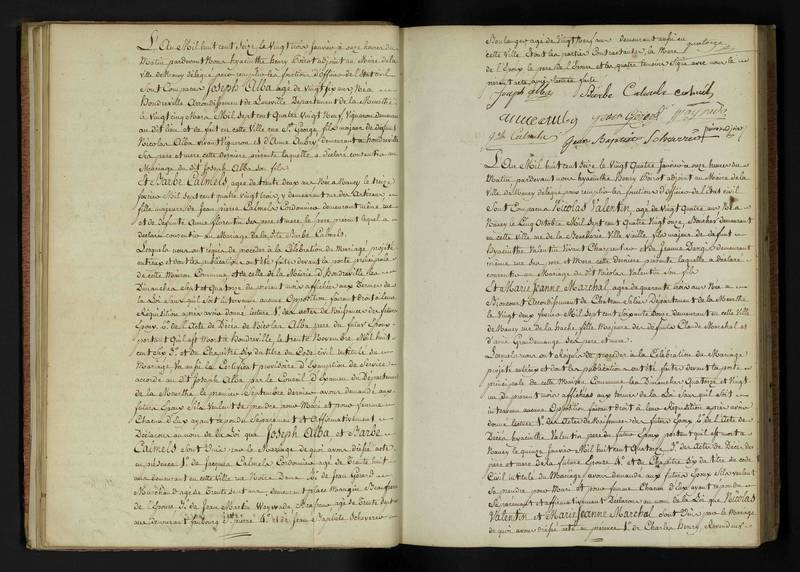 L'An Mil huit cent Seize le Vingt trois Janvier à onze heures du
Matin pardevant Nous hyacinthe henry Boist adjoint au Maire de la
Ville de Nancy délégué pour remplir les fonctions d'Officier de l'Etat civil
Sont Comparus Joseph Alba agé de Vingt six ans Né à
hondreville Arrondissement de Luneville Département de la Meurthe
le Vingt cinq Mars Mil sept cent Quatre Vingt Neuf Vigneron demeurant
au dit lieu et de fait en cette Ville rue St George, fils majeur de défunt
Nicolas Alba Vivant Vigneron et d'Anne Aubry demeurant à hondreville
ses pere et mere cette derniere présente laquelle a déclaré consentir au
Mariage du dit Joseph Alba son fils
Et Barbe Calmels, agée de trente deux ans Née à Nancy le treize
fevrier Mil sept cent quatre Vingt trois, y demeurant rue des Artisans
fille majeure de jean pierre Calmels Cordonnier demeurant même rue
et de défunte Anne florentin ses pere et mere, le pere présent lequel a
déclaré consentir au Mariage de la dite Barbe Calmels.
Lesquels nous ont requis de procéder à la Célébration du Mariage projetté
entr'eux et dont les publications ont été faites devant la porte principale
de cette Maison Commune et de celle de la Mairie d'hondreville les
Dimanches sept et Quatorze du présent mois affichées aux termes de
la Loi sans qu'il soit intervenu aucune Opposition faisant droit à leur
Réquisition après avoir donné lecture 1° des Actes de Naissance des futurs
Epoux 2° de l'Acte de Décès de Nicolas Alba pere du futur Epoux
portant qu'il est Mort à hondreville le trente Novembre Mil huit
cent six 3° et du Chapitre Six du titre du Code civil intitulé du
Mariage Vu aussi le Certificat provisoire d'Exemption de Service
accordé au dit Joseph Alba par le Conseil d'Examen du Département
de la Meurthe le premier Septembre dernier avons demandé aux
futurs Epoux s'ils Veulent se prendre pour Mari et pour femme
Chacun d'Eux ayant répondu Séparément et Affirmativement
Déclarons au nom de la Loi que Joseph Alba, et Barbe
Calmels sont Unis par le Mariage de quoi avons dressé acte
en présence 1° de Jacques Calmels Cordonnier agé de trente huit
ans demeurant en cette Ville rue Notre Dame 2° de Jean Gérard
Marchand agé de trente sept ans, demeurant place
de l'Epouse 3° de Jean Martin agé de trente
ans demeurant faubourg St pierre 4° et de jean Baptiste
Boulanger agé de Vingt Neuf ans demeurant aussi en
cette Ville Dont les parties Contractantes, la Mere
de l'Epoux le pere de l'Epouse et les quatre témoins Signé avec nous le
présent acte après lecture faite
Joseph alba Barbe Calmels calmels
jean Gérard
Jean Baptiste
L'An Mil huit cent Seize le Vingt Quatre Janvier à onze heures du
Matin pardevant nous hyacinthe henry Boist adjoint au Maire de la
Ville de Nancy délégué pour remplir les fonctions d'Officier de l'Etat civil
Sont Comparus Nicolas Valentin, agé de Vingt Quatre ans Né à
Nancy le Cinq Octobre Mil sept cent Vingt onze, demeurant
en cette Ville rue de la Boucherie Ville Vieille fils majeur de défunt
hyacinthe Valentin Vivant Charpentier et de jeanne demeurant
même rue ses pere et mere cette derniere présente laquelle a déclaré
consentir au Mariage du dit Nicolas Valentin son fils
Et Marie Jeanne Marchal agée de quarante trois ans Née à
Arrondissement de Chateau Salins Département de la Meurthe
le Vingt deux Mil sept cent soixante douze demeurant en cette Ville
de Nancy rue de la hache, fille majeure de défunts Claude Marchal et
d'Anne Grandemange ses pere et mere.
Lesquels nous ont requis de procéder à la Célébration du Mariage
projetté entr'eux et dont les publications ont été faites devant la porte
principale de cette Maison Commune les Dimanches Quatorze et Vingt
un du présent mois affichées aux termes de la Loi sans qu'il soit
intervenu aucune Opposition faisant droit à leur Réquisition après avoir
donné lecture 1° des Actes de Naissance des futurs Epoux 2° de l'Acte de
Décès hyacinthe Valentin pere du futur Epoux portant qu'il est mort à
Nancy le quinze Janvier Mil huit cent Quatorze 3° des Actes de Décès des
pere et mere de la future Epouse 4° et du Chapitre Six du titre du code
Civil intitulé du Mariage avons demandé aux futurs Epoux s'ils veulent
se prendre pour Mari et pour femme Chacun d'Eux ayant répondu
Séparément et affirmativement Déclarons au nom de la Loi que Nicolas
Valentin et Marie Jeanne Marchal sont Unis par le Mariage
de quoi avons dressé acte en présence 1° de Charles henry